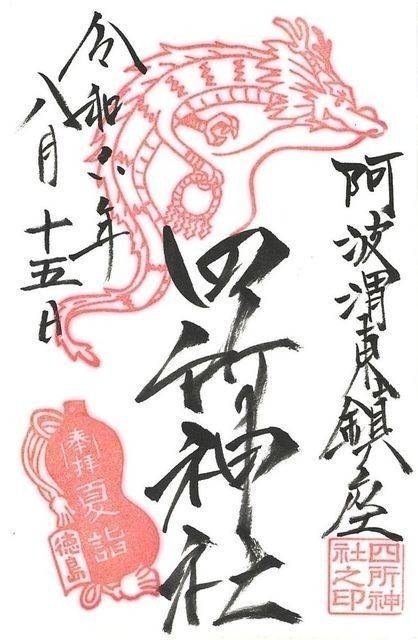 阿波渭東鎮座
四所神社
令和六年
八月十五日
奉拝
夏詣
徳島
四所神
社之印